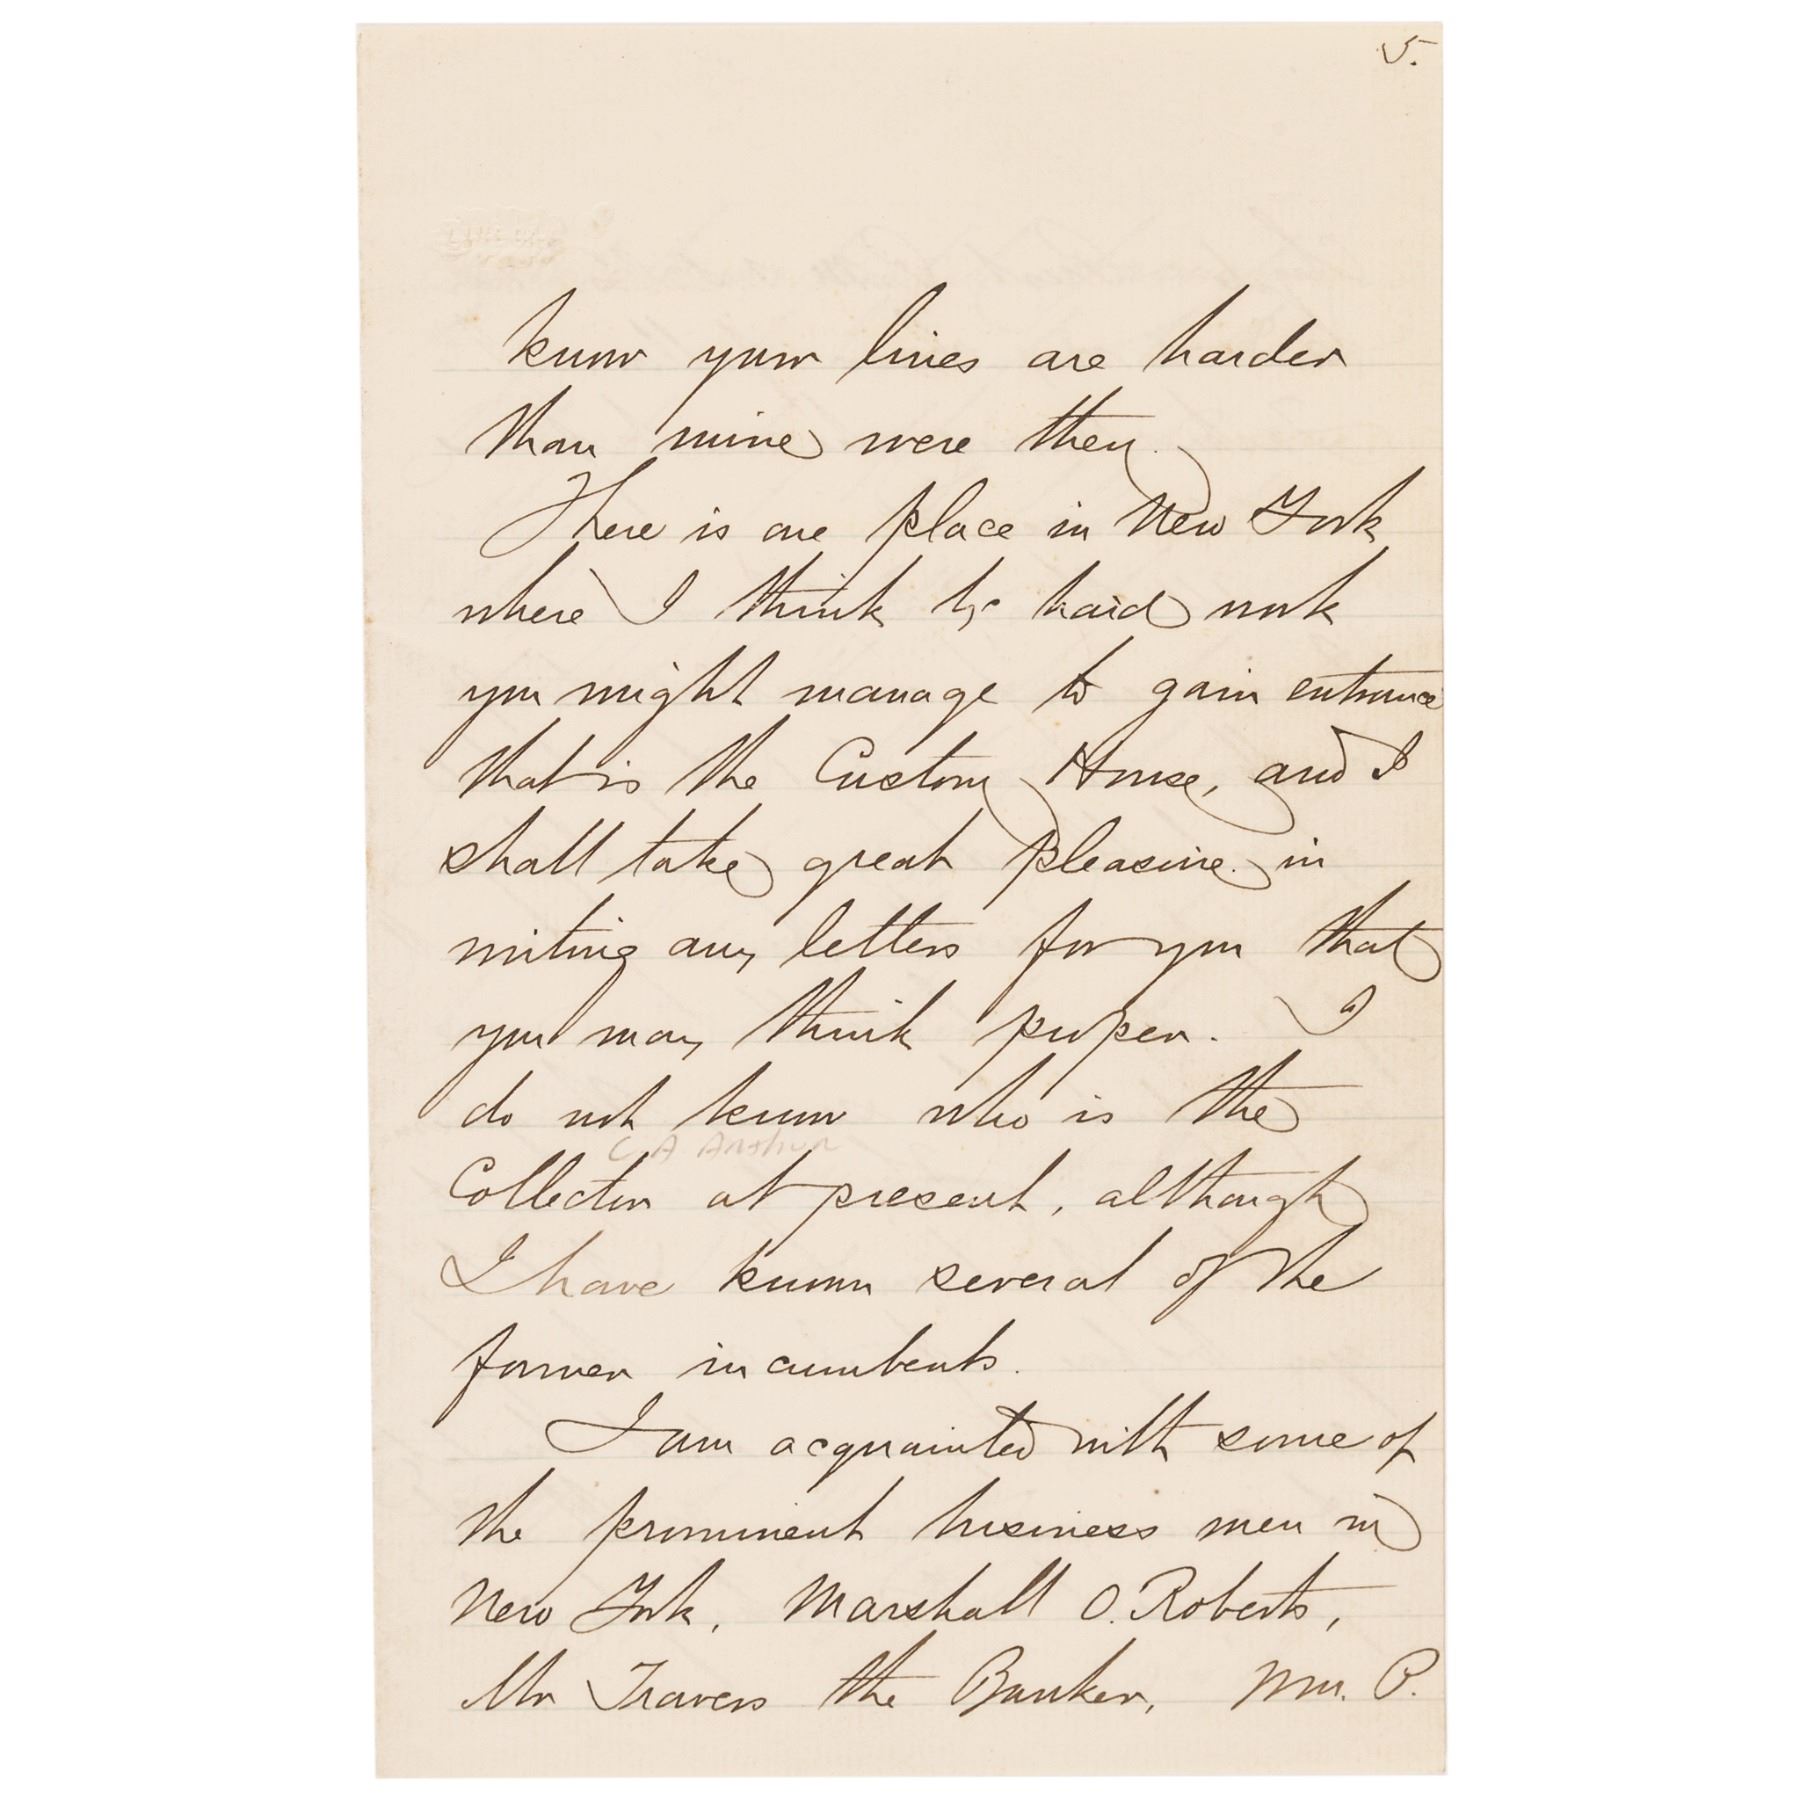 5.
know your lines are harder
than mine were then.
There is one place in New York
where I think by hard work
you might manage to gain entrance
that is the Custom House, and I
shall take great pleasure in
writing any letters for you that
you may think proper. I
do not know who is the
C A Arthur
Collector at present, although
I have known several of the
former incumbents.
I am acquainted with some of
the prominent business men in
New York, Marshall O. Roberts,
Mr Travers the Banker, Wm. P.